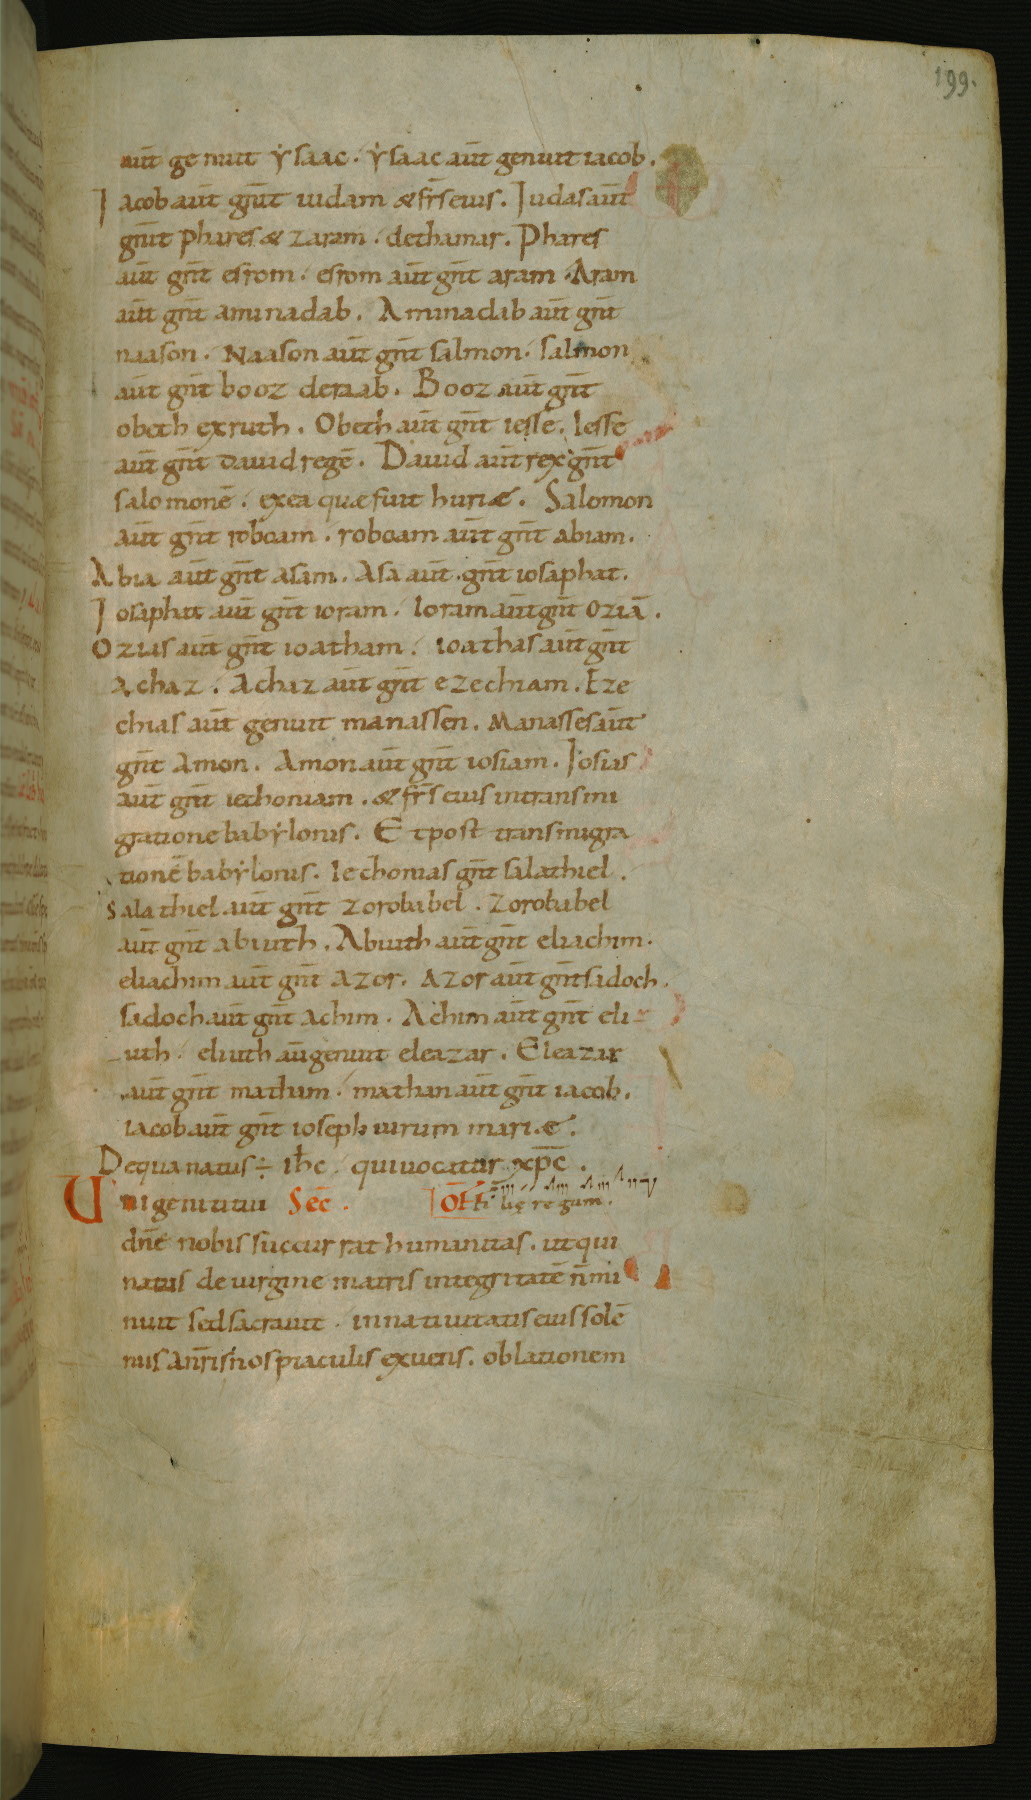 199.
aut̄ genuit ẏsaac. ẏsaac aut̄ genuit iacob.
Iacob aut̄ gn̄it iudam & fr̄s eius. Iudas aut̄
gn̄it phares & zaram. de thamar. Phares
aut̄ gn̄it esrom. esrom aut̄ gn̄it aram. Aram
aut̄ gn̄it aminadab. Aminadab aut̄ gn̄it
naason. Naason aut̄ gn̄it salmon. salmon
aut̄ gn̄it booz de raab. Booz aut̄ gn̄it
obeth ex ruth. Obeth aut̄ gn̄it iesse. Iesse
aut̄ gn̄it dauid regē. Dauid aut̄ rex gn̄it
salomonē. ex ea quæ fuit huriæ. Salomon
aut̄ gn̄it roboam. roboam aut̄ gn̄it abiam.
Abia aut̄ gn̄it asam. Asa aut̄. gn̄it iosaphat.
Iosaphat aut̄ gn̄it ioram. Ioram aut̄ gn̄it oziā.
Ozias aut̄ gn̄it ioatham. ioathas aut̄ gn̄it
Achaz. Achaz aut̄ gn̄it ezechiam. Eze
chias aut̄ genuit manassen. Manasses aut̄
gn̄it Amon. Amon aut̄ gn̄it iosiam. Iosias
aut̄ gn̄it iechoniam. & fr̄s eius in transmi
gratione babẏlonis. Et post transmigra
tionē babẏlonis. Iechonias gn̄it salathiel.
Salathiel aut̄ gn̄it zorobabel. Zorobabel
aut̄ gn̄it abiuth. Abiuth aut̄ gn̄it eliachim.
eliachim aut̄ gn̄it azor. Azor aut̄ gn̄it sadoch.
sadoch aut̄ gn̄it achim. Achim aut̄ gn̄it eli
uth. eliuth aū genuit eleazar. Eleazar
aut̄ gn̄it mathan. mathan aut̄ gn̄it iacob.
iacob aut̄ gn̄it ioseph uirum mariæ.
De qua natus ÷ ih̄c. qui uocatur xp̄c.
Unigeniti tui Sec̄. OF̄F filię regum.
dn̄e nobis succurrat humanitas. ut qui
natus de uirgine matris integritatē n̄ mi
nuit sed sacrauit. in natiuitatis eius solē
niis a n̄ris nos piaculis exuens. oblationem